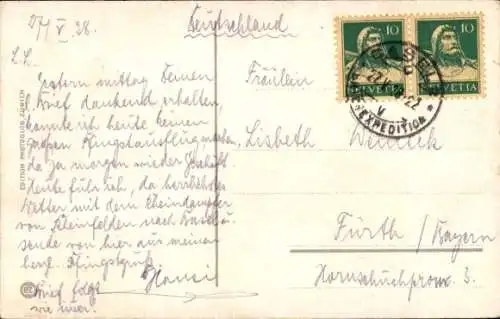 27/V 28.
Deutschland
L. L.
Gestern mittag Deinen
Brief dankend erhalten,
konnte ich heute keinen
großen Pfingstausflug machen,
da ja morgen wieder Geschäft.
Heute fuhr ich, da herrliches
Wetter mit dem Rheindampfer
von Rheinfelden nach Basel u.
sende von hier aus meinen
herzl. Pfingstgruß
Hansi
Brief folgt
wie immer.
Fräulein
Lisbeth
Fürth / Bayern
Hornschuchprom. 3.
10 10
HELVETIA HELVETIA
BASEL
BRIEFEXPEDITION
EDITION PHOTOGLOB ZÜRICH
PZ